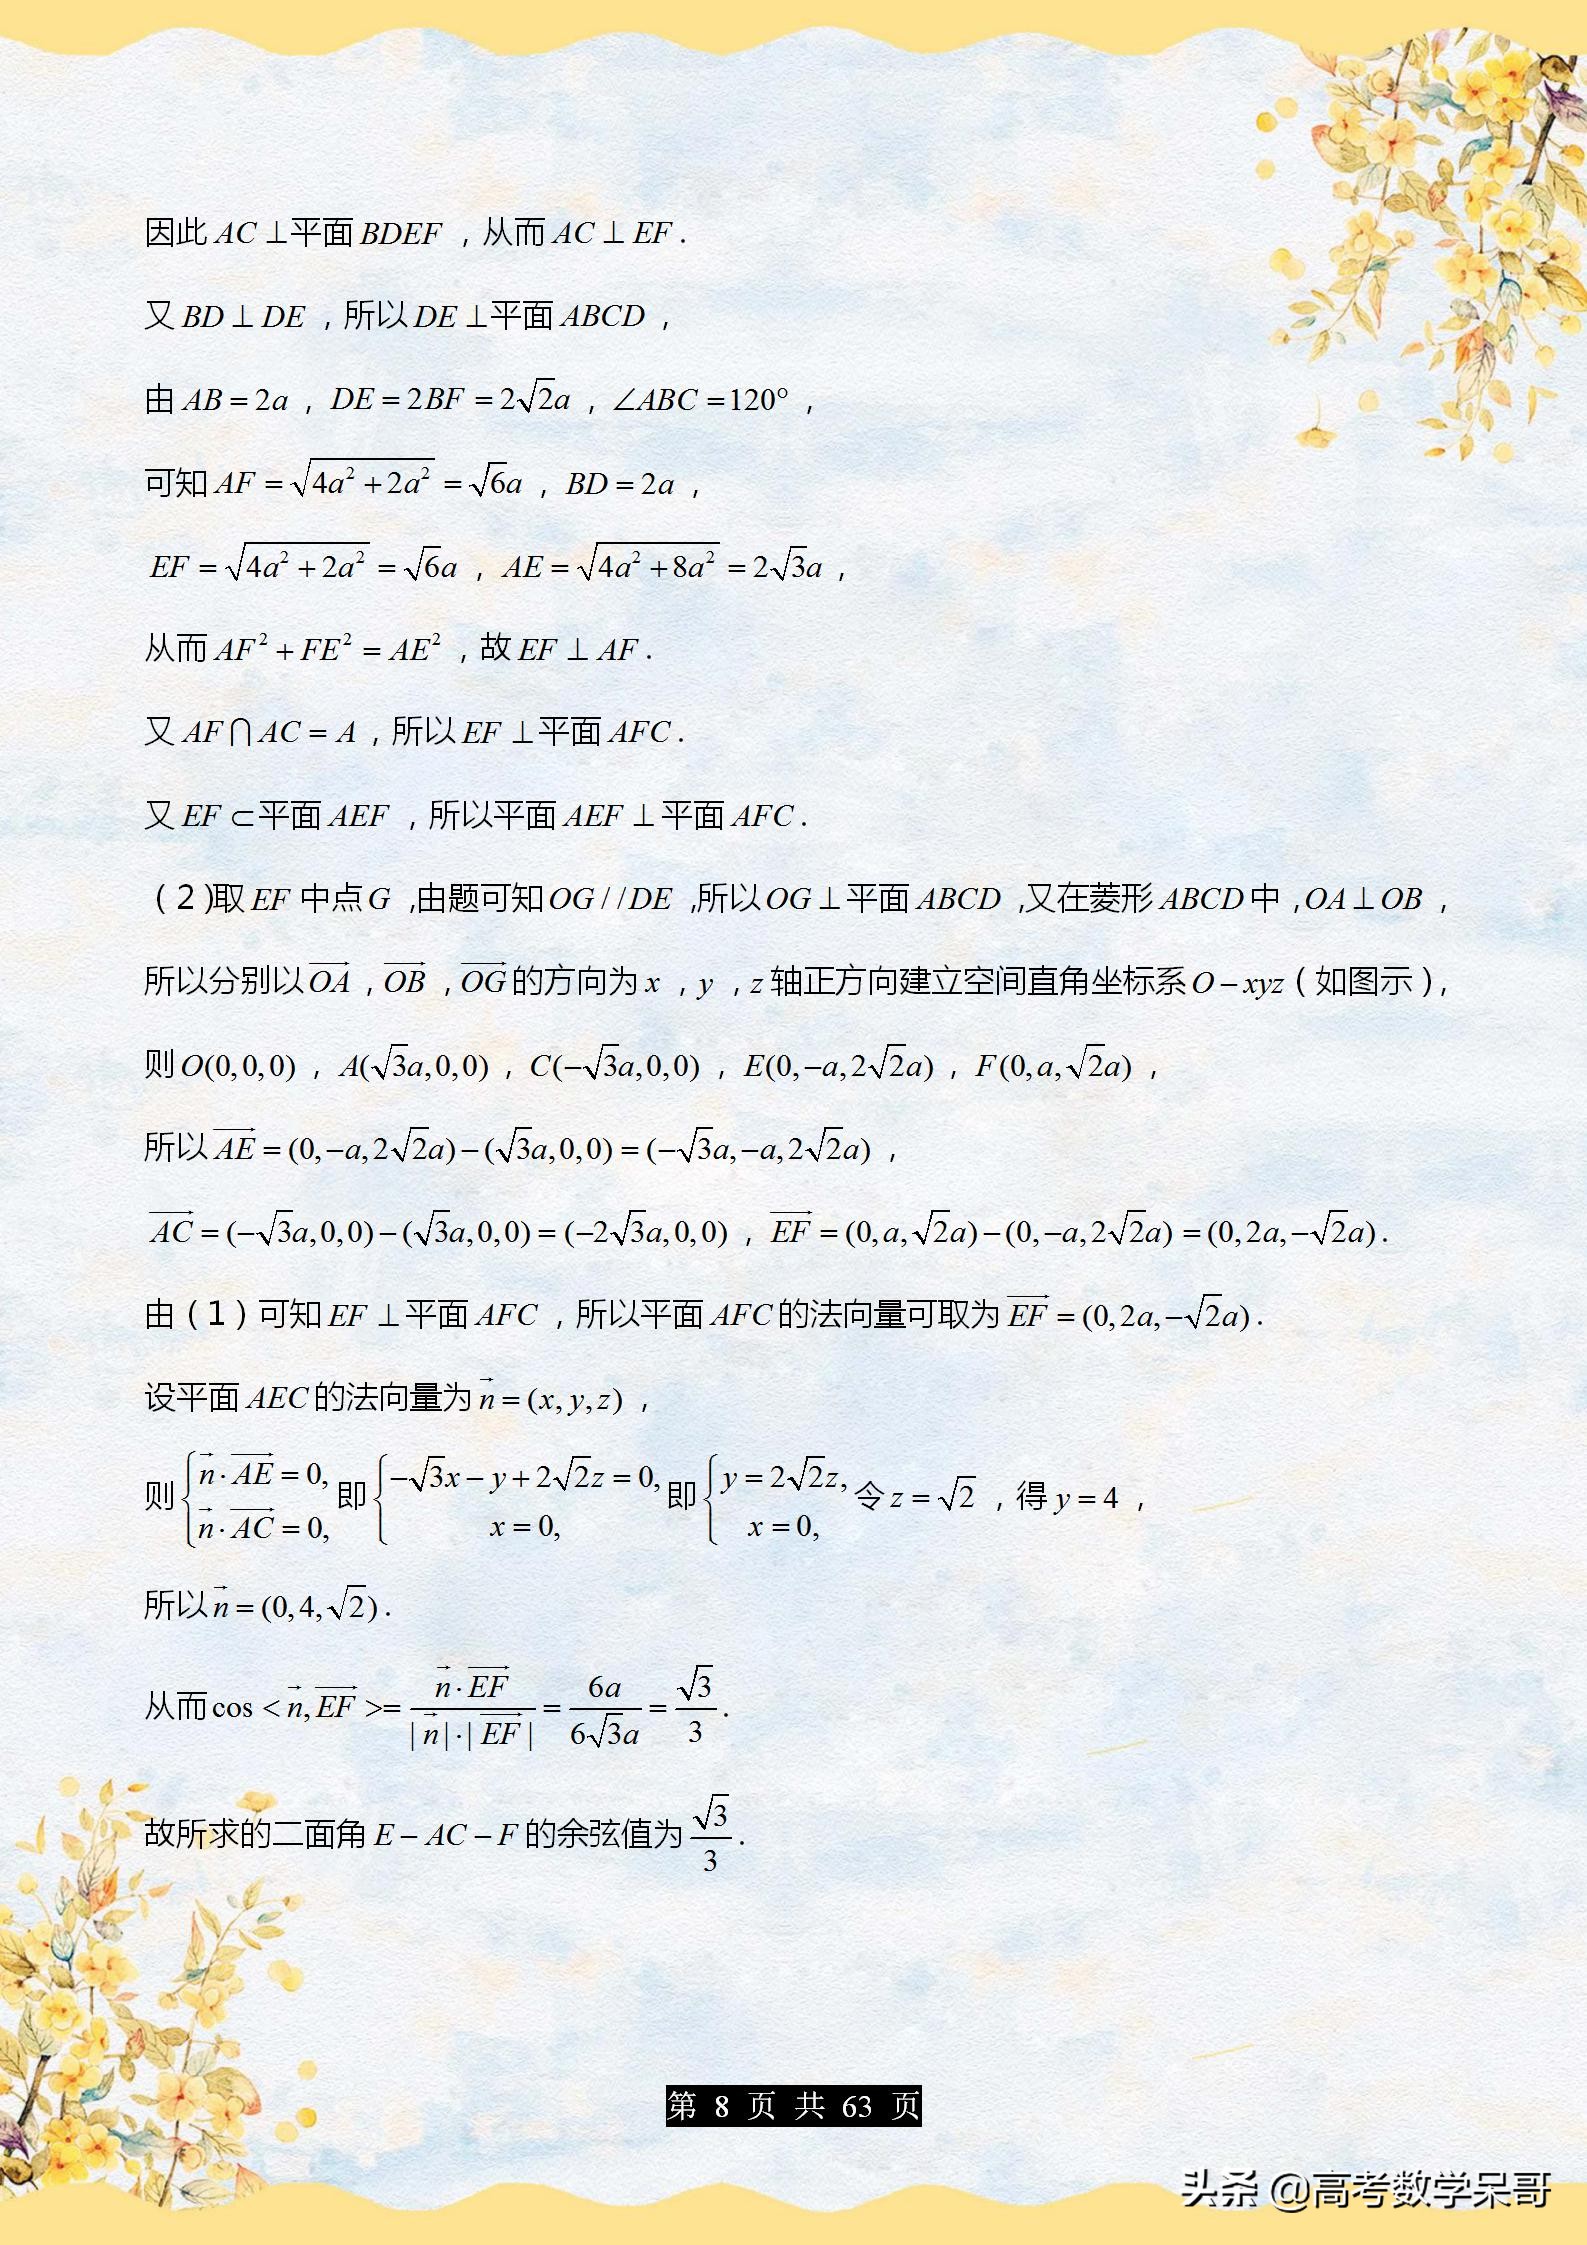 因此 AC ⊥平面 BDEF ，从而 AC ⊥ EF .
又 BD ⊥ DE ，所以 DE ⊥平面 ABCD ，
由 AB = 2a ， DE = 2BF = 2√2a ， ∠ABC =120° ，
可知 AF = √(4a² + 2a²) = √6a ， BD = 2a ，
EF = √(4a² + 2a²) = √6a ， AE = √(4a² +8a²) = 2√3a ，
从而 AF² + FE² = AE² ，故 EF ⊥ AF .
又 AF ⋂ AC = A ，所以 EF ⊥平面 AFC .
又 EF ⊂平面 AEF ，所以平面 AEF ⊥平面 AFC .
（2）取 EF 中点 G ，由题可知 OG / /DE ，所以 OG ⊥平面 ABCD ，又在菱形 ABCD 中，OA ⊥ OB ，
所以分别以 \overrightarrow{OA} ，\overrightarrow{OB} ，\overrightarrow{OG} 的方向为 x ，y ，z 轴正方向建立空间直角坐标系 O − xyz（如图示），
则 O(0,0,0) ， A(√3a,0,0) ， C(−√3a,0,0) ， E(0,−a,2√2a) ， F(0,a,√2a) ，
所以 \overrightarrow{AE} = (0,−a,2√2a) − (√3a,0,0) = (−√3a,−a,2√2a) ，
\overrightarrow{AC} = (−√3a,0,0) − (√3a,0,0) = (−2√3a,0,0) ， \overrightarrow{EF} = (0,a,√2a) − (0,−a,2√2a) = (0,2a,−√2a) .
由（1）可知 EF ⊥平面 AFC ，所以平面 AFC 的法向量可取为 \overrightarrow{EF} = (0,2a,−√2a) .
设平面 AEC 的法向量为 \vec{n} = (x, y,z) ，
则 {\vec{n}·\overrightarrow{AE} = 0, \vec{n}·\overrightarrow{AC} = 0, 即 {−√3x − y + 2√2z = 0, x = 0, 即 {y = 2√2z, x = 0, 令 z = √2 ，得 y = 4 ，
所以 \vec{n} = (0,4,√2) .
从而 cos < \vec{n},\overrightarrow{EF} >= \frac{\vec{n}·\overrightarrow{EF}}{|\vec{n}|·|\overrightarrow{EF}|} = \frac{6a}{6√3a} = \frac{√3}{3} .
故所求的二面角 E − AC − F 的余弦值为 \frac{√3}{3} .
第 8 页 共 63 页
头条 @高考数学呆哥